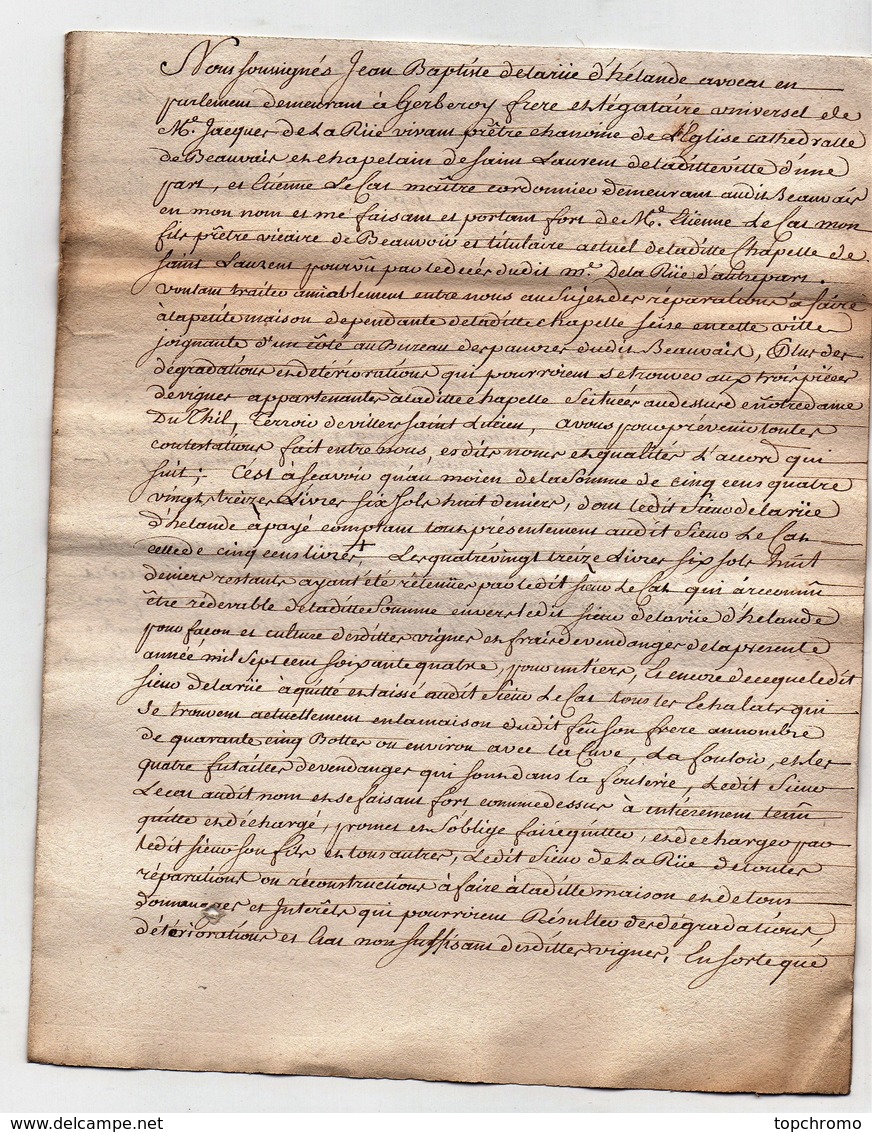 Nous soussignés Jean Baptiste delarüe d'hélande avocat en
parlement demeurant à Gerberoy frere et légataire universel de
Mr. Jacques de La Rüe vivant prêtre chanoine de L'Eglise cathedralle
de Beauvais et chapelain de Saint Laurent de laditte ville d'une
part, et Etienne Le Cat maître cordonnier demeurant audit Beauvais
en mon nom et me faisant et portant fort de Mr. Etienne Le Cat mon
fils prêtre vicaire de Beauvoir et titulaire actuel de laditte Chapelle de
Saint Laurent pourvû par le decés dudit mr. De la Rüe d'autre part.
voulant traiter amiablement entre nous au Sujet des réparations à faire
à la petite maison dependante de laditte chapelle seise en cette ville
joignante d'un côté au Bureau des pauvres dudit Beauvais, Plus des
dégradations et deteriorations qui pourroient se trouver aux trois piéces
de vignes appartenantes à laditte chapelle Scituées au dessus de notre dame
Du Thil, Terroir de villers Saint Lucien, avons pour prévenir toutes
contestations fait entre nous, esdits noms et qualités L'accord qui
suit; C'est à scavoir qu'au moien de la Somme de cinq cens quatre
vingts treizes Livres six sols huit deniers, dont ledit Sieur delarüe
d'hélande à payé comptant tout présentement audit Sieur Le Cat
celle de cinq cens livres, + Les quatrévingt treize Livres six sols huit
deniers restants ayant été rétenües par ledit sieur Le Cat qui à reconnû
être redevable de laditte Somme envers ledit sieur delarüe d'hélande
pour façon et culture desdittes vignes et frais de vendanges de la presente
année mil Sept cent soixante quatre, pour un tiers, Et encore de ce que ledit
sieur delarüe à quitté et laissé audit Sieur Le Cat tous les Echalats qui
se trouvent actuellement en la maison dudit feû son frere au nombre
de quarante cinq Bottes ou environ avec la Cuve, La fouloir, et les
quatre futailles de vendanges qui sont dans la fouterie, Ledit Sieur
Le cat audit nom et se faisant fort comme dessus à entiérement tenû
quitte et déchargé, promet et S'oblige faire quitter, et décharger par
ledit sieur son fils et tous autres, Ledit Sieur de La Rüe de toutes
réparations ou réconstructions à faire à laditte maison et de tous
dommages et Interêts qui pourroient Résulter des dégradations,
détériorations et Etat non suffisant desdittes vignes, En sorte que
topchromo